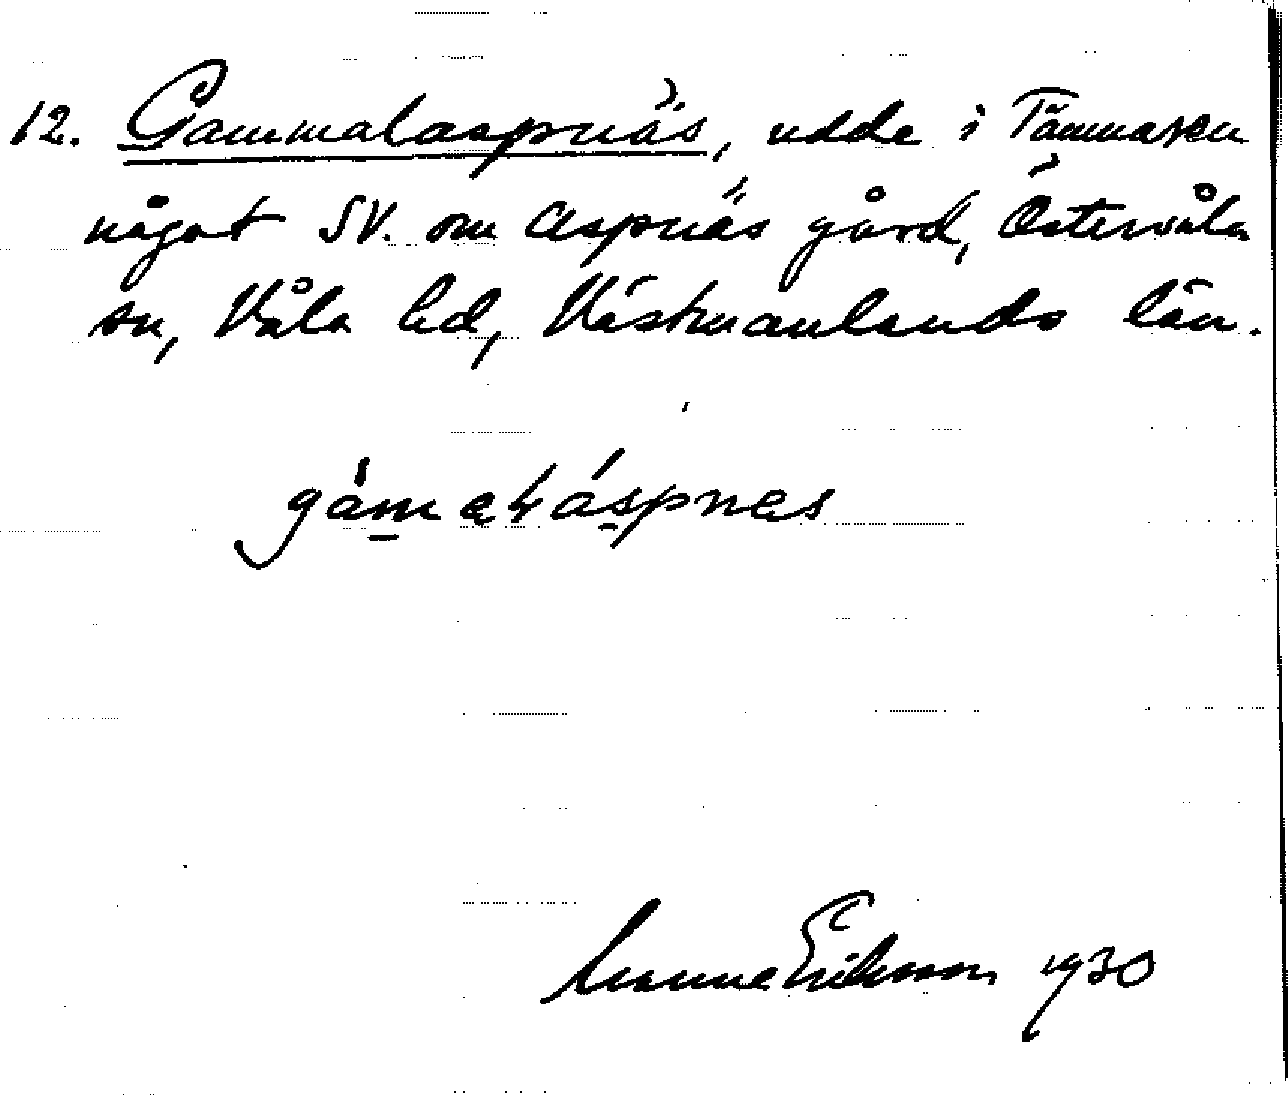 12. Gammalaspnäs, udde i Tämnaren
något SV. om Aspnäs gård, Östervåla
sn, Våla hd, Västmanlands län.
Manne Eriksson 1930